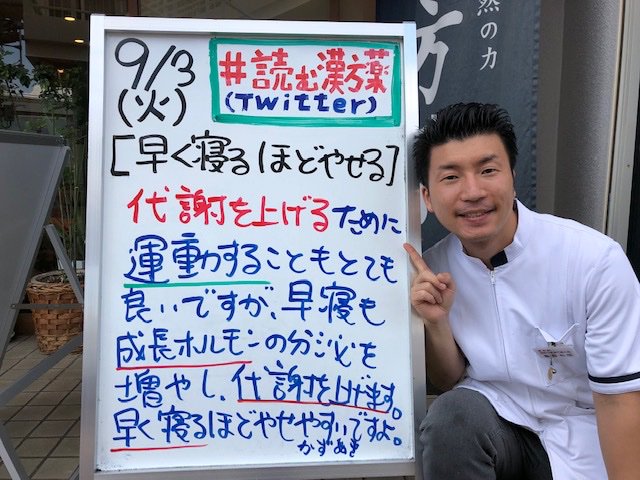 9/3
(火)
#読む漢方薬
(Twitter)
[早く寝るほどやせる]
代謝を上げるために
運動することもとても
良いですが、早寝も
成長ホルモンの分泌を
増やし、代謝を上げます。
早く寝るほどやせやすいですよ。
かずあき
然の力
方